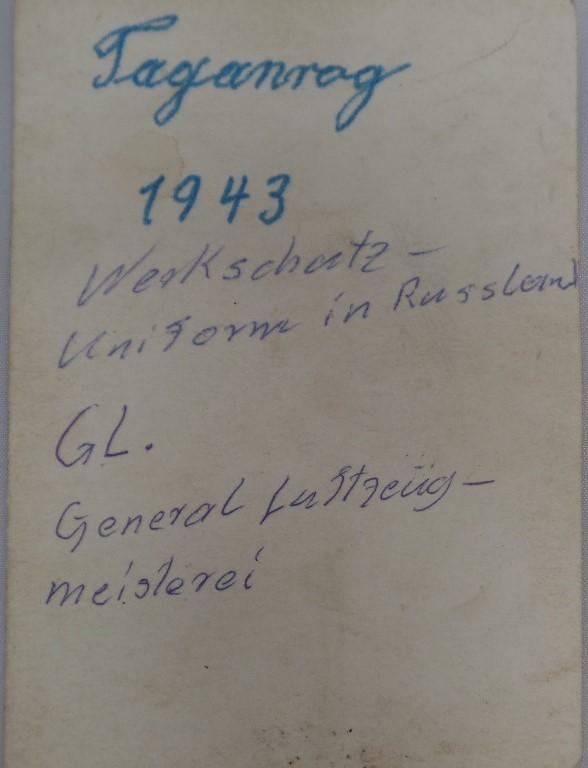 Taganrog
1943
Werkschutz-
Uniform in Russland
GL.
General Luftzeüg-
meisterei